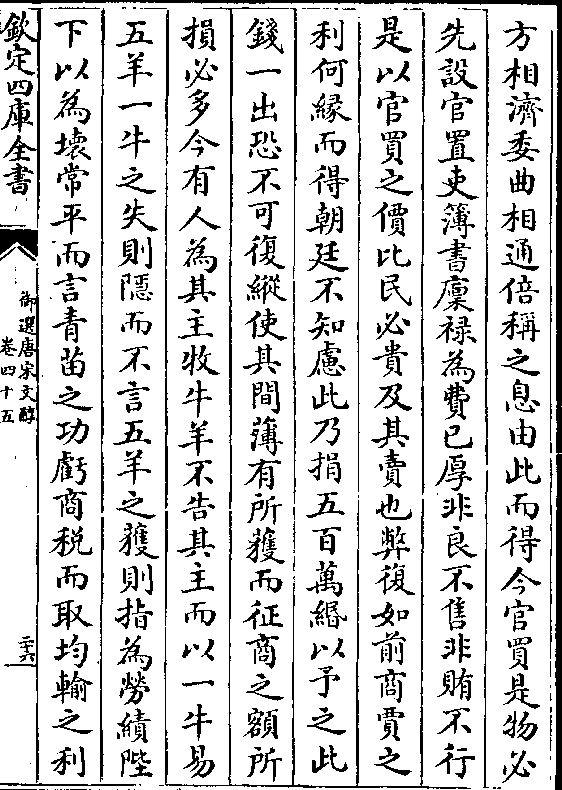 方相濟委曲相通倍稱之息由此而得今官買是物必
先設官置吏簿書廩禄為費已厚非良不售非賄不行
是以官買之價比民必貴及其賣也弊復如前商賈之
利何縁而得朝廷不知慮此乃捐五百萬緡以予之此
錢一出恐不可復縱使其間薄有所獲而征商之額所
損必多今有人為其主牧牛羊不告其主而以一牛易
五羊一牛之失則隱而不言五羊之獲則指為勞績陛
下以為壊常平而言青苗之功虧商税而取均輸之利
欽定四庫全書
御選唐宋文醇
卷四十五
二十六